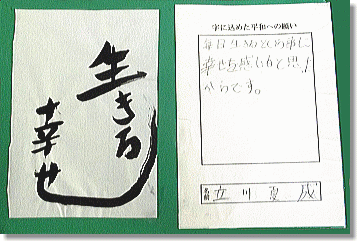 生きる
幸せ
字に込めた平和への願い
毎日生きるという事に
幸せを感じれて思う
からです。
名前
立川夏成